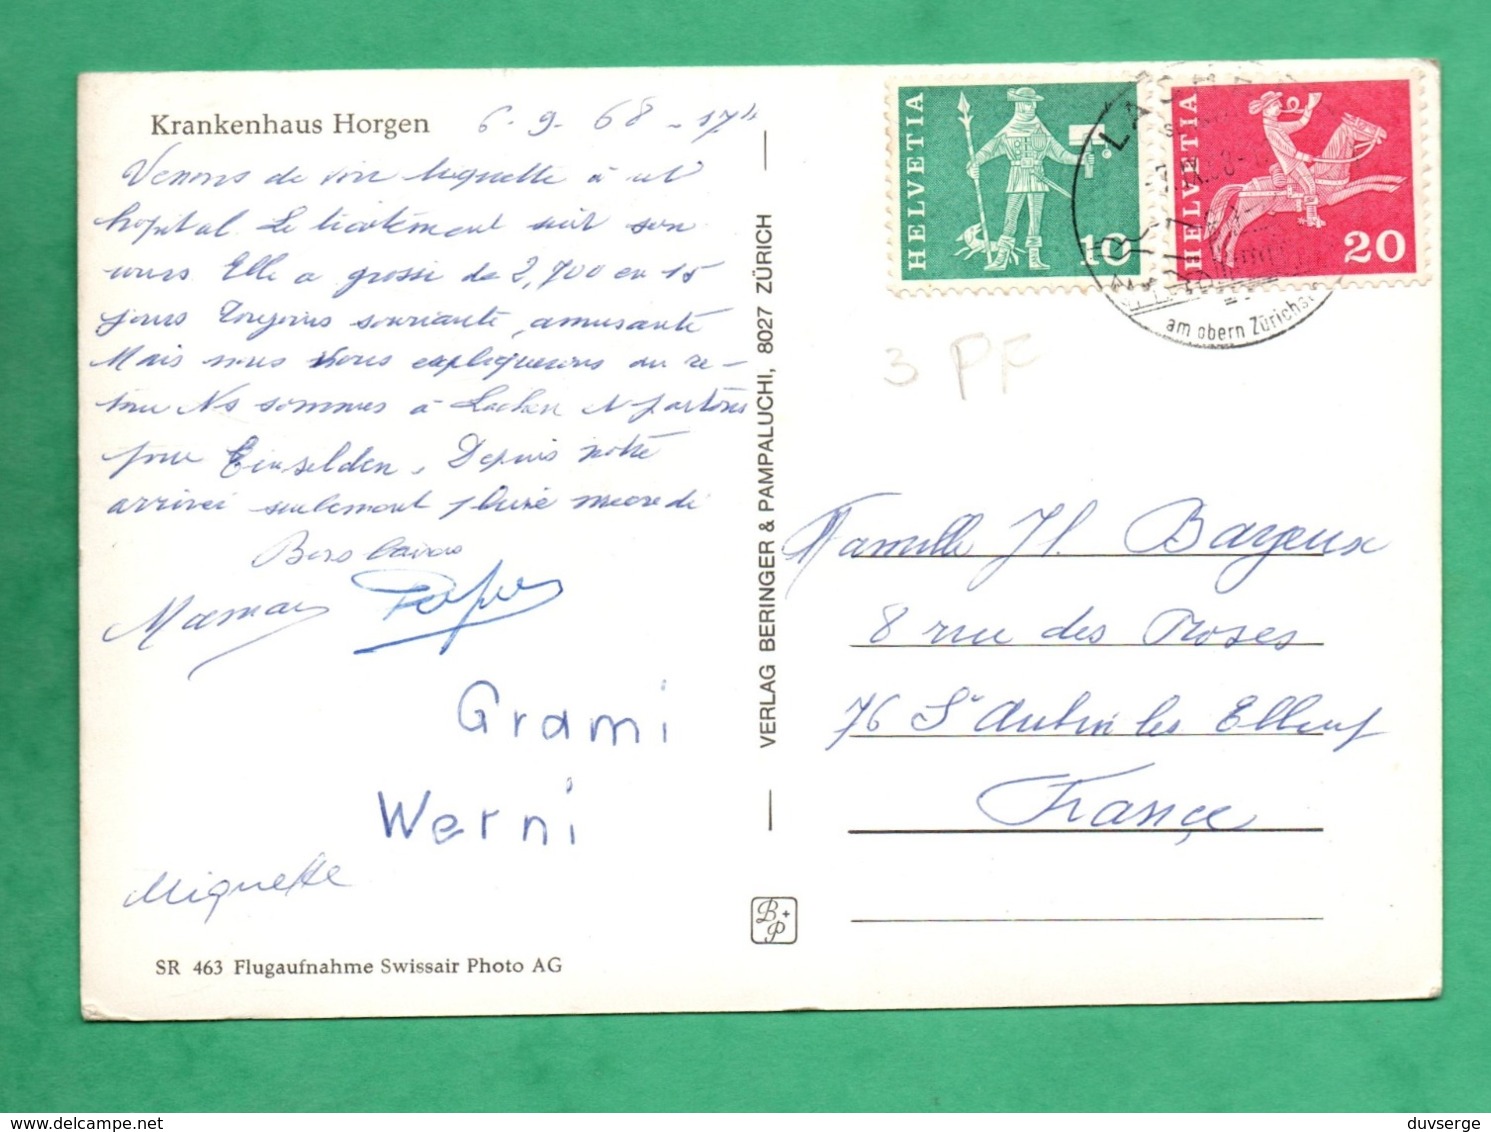 Krankenhaus Horgen 6-9-68-17h
Venons de voir Miquette à cet
hopital. Le traitement suit son
cours Elle a grossi de 2,700 en 15
jours Toujours souriante, amusante
Mais nous vous expliquerons au re-
tour Ns sommes à Lachen et partons
pour Einselden. Depuis notre
arrivée seulement pluie mercredi
Bons baisers
Maman Papa
Grami
Werni
Miquette
SR 463 Flugaufnahme Swissair Photo AG
VERLAG BERINGER & PAMPALUCHI, 8027 ZÜRICH
B+P
HELVETIA 10
HELVETIA 20
am obern Zürichs
3 PF
Famille H. Bayeux
8 rue des Roses
76 St Aubin les Elbeuf
France
duvserge